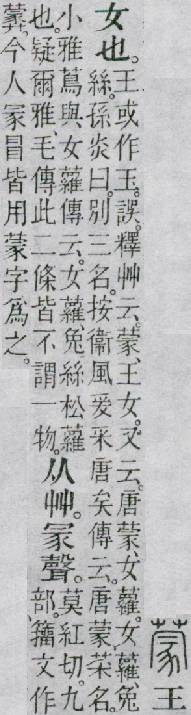 蒙 王
女也。
王或作玉。誤。釋艸云。蒙、王女。又云。唐蒙、女蘿。女蘿、兔
絲。孫炎曰。別三名。按衞風爰釆唐矣傳云。唐蒙、菜名。
小雅蔦與女蘿傳云。女蘿、兔絲松蘿
也。疑爾雅毛傳此二條皆不謂一物。
从艸。冡聲。
莫紅切。九
部。籒文作
今人冡冒皆用蒙字爲之。